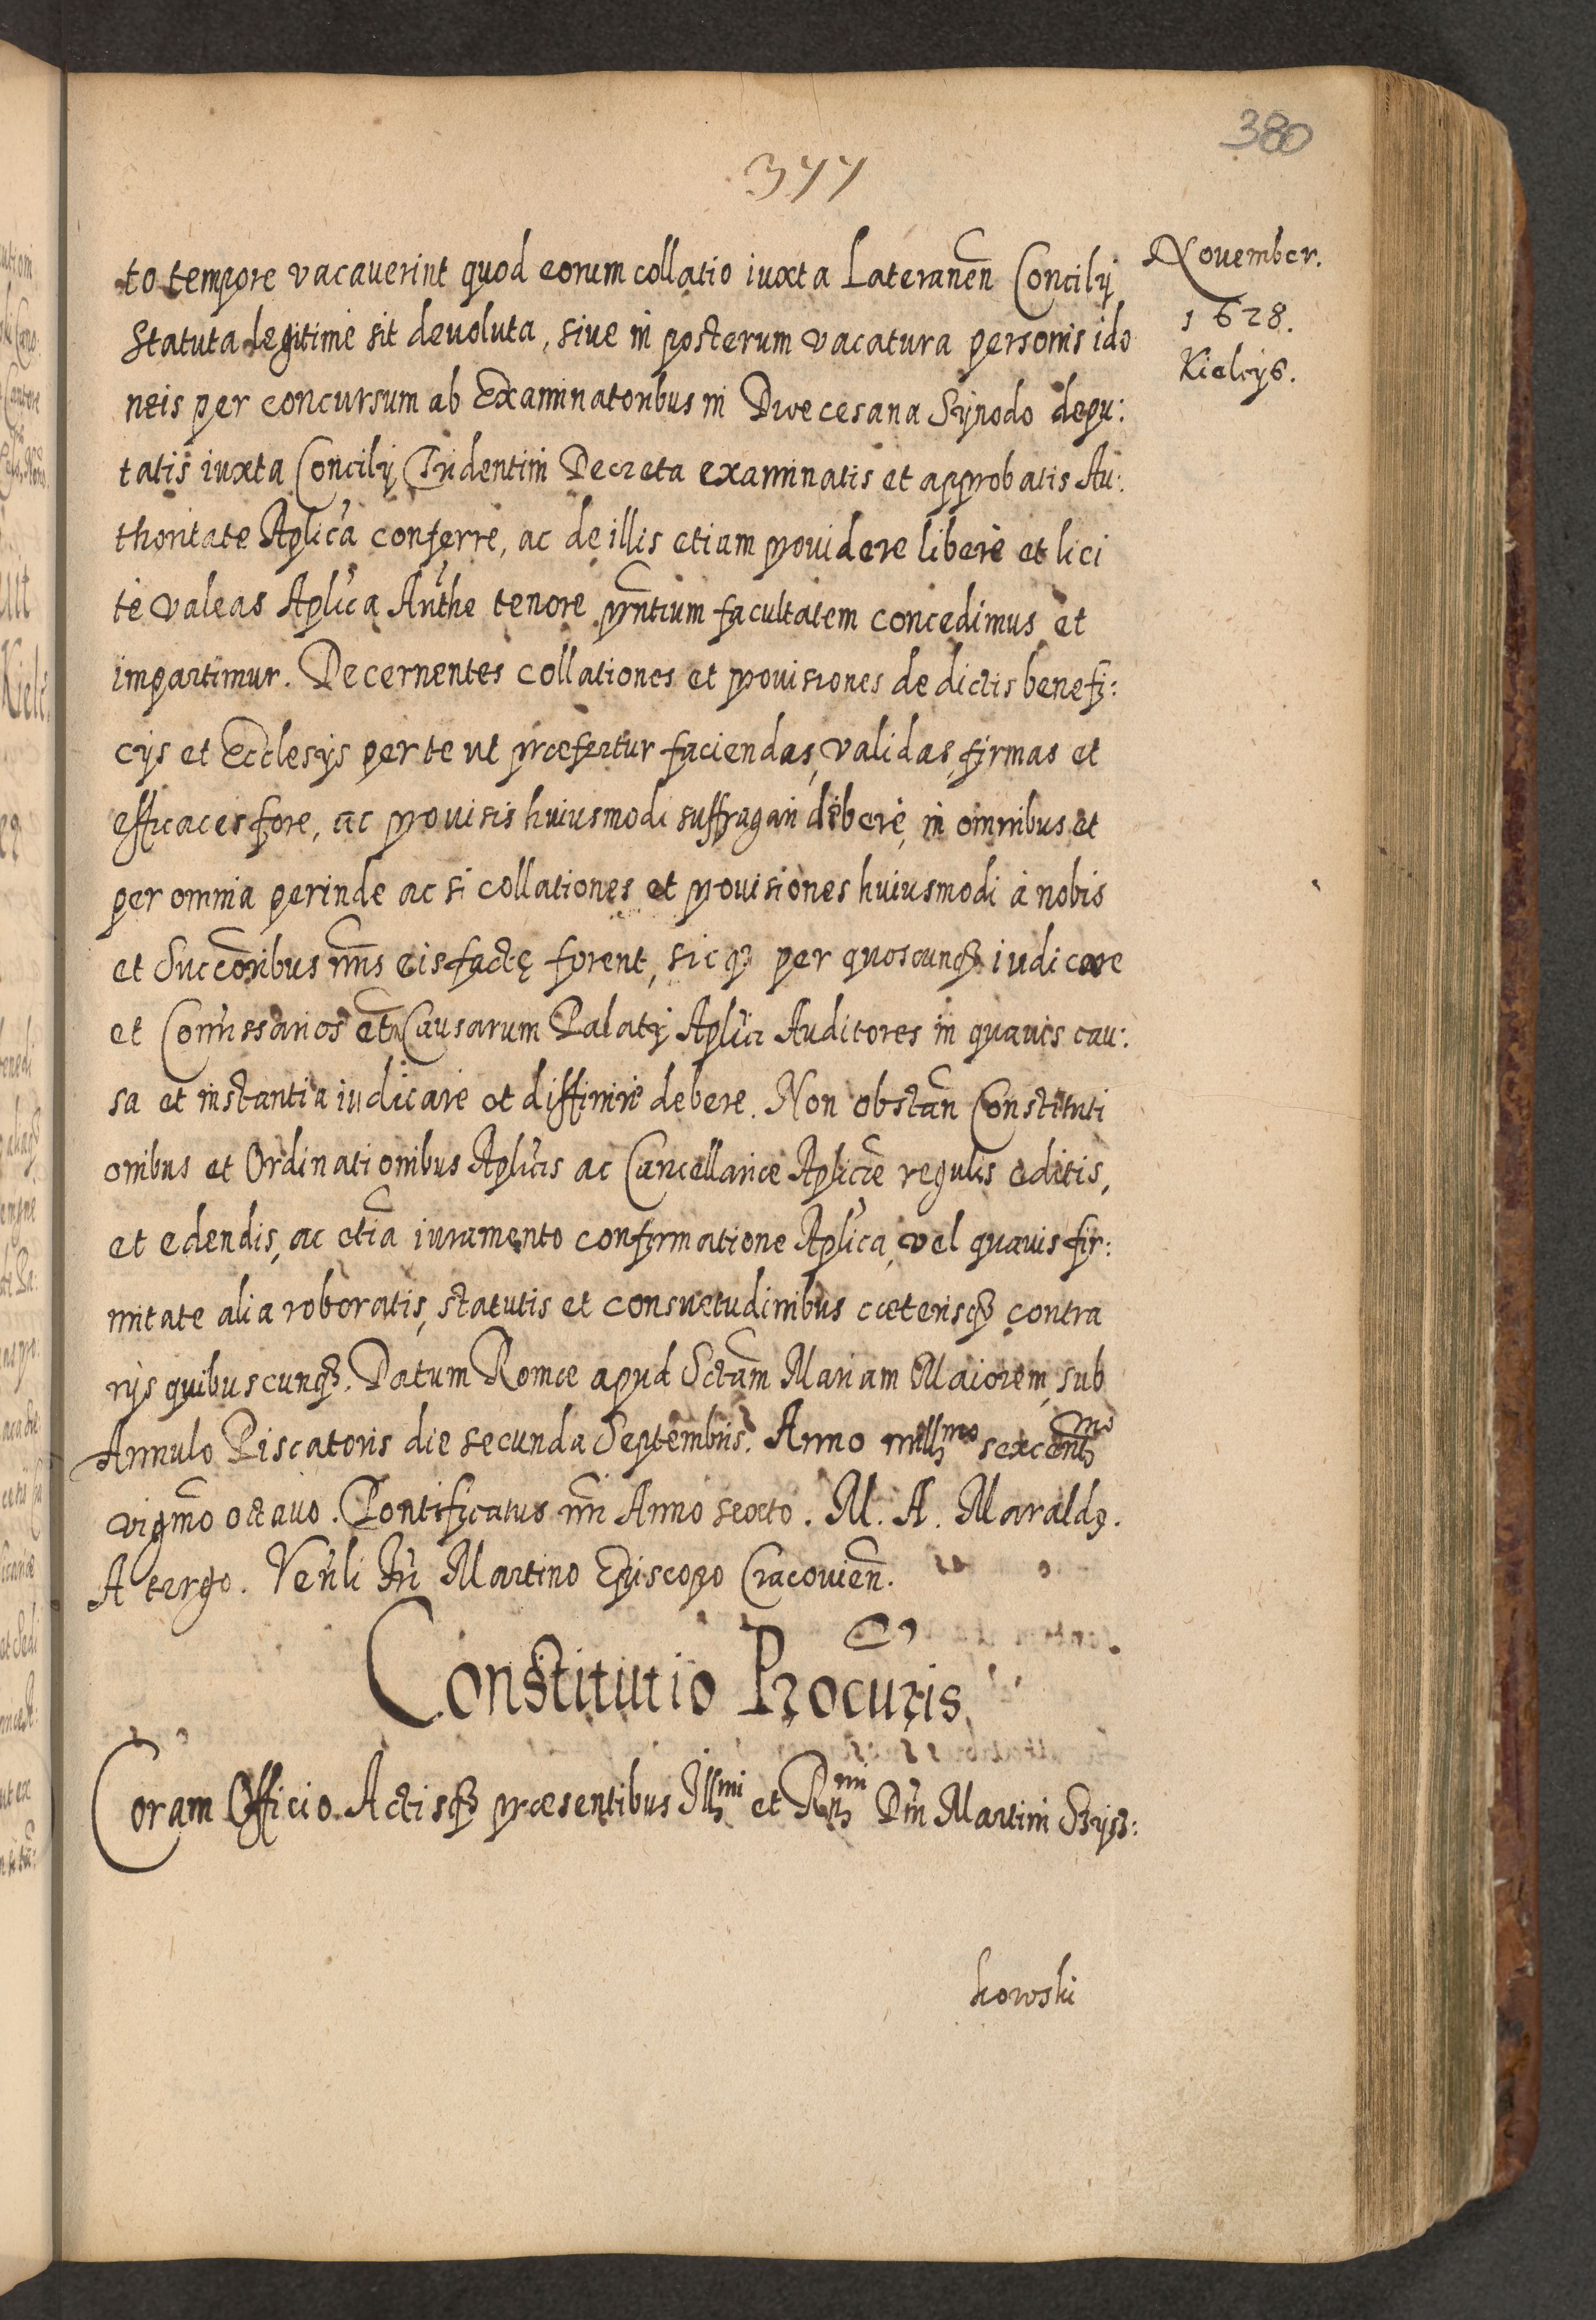 380
377
November.
1628.
Kielcys.
to tempore vacauerint quod eorum collatio iuxta Lateraneñ Concilij
Statuta legitimè sit deuoluta, siue in posterum vacatura personis ido
neis per concursum ab Examinatoribus in Dioecesana Synodo depu:
tatis iuxta Concilij Tridentini Decreta examinatis et approbatis Au:
thoritate Aplica conferre, ac de illis etiam prouidere liberè et lici
tè valeas Aplica Authe tenore pñtium facultatem concedimus et
impartimur. Decernentes collationes et prouisiones de dictis benefi:
cijs et Ecclesijs per te ut præfertur faciendas, validas, firmas et
efficaces fore, ac prouisis huiusmodi suffragari debere, in omnibus et
per omnia perinde ac si collationes et prouisiones huiusmodi à nobis
et Succoribus nñis eis factę forent, sicq3 per quoscunq3 iudicare
et Comissarios etã Causarum Palatij Aplici Auditores in quauis cau:
sa et instantia iudicare et diffinire debere. Non obstañ Constituti
onibus et Ordinationibus Aplicis ac Cancellariæ Aplicæ regulis editis,
et edendis, ac etiã iuramento confirmatione Aplica, vel quauis fir:
mitate alia roboratis, statutis et consuetudinibus cæterisq3 contra
rijs quibuscunq3. Datum Romæ apud Sctam Mariam Maiorem, sub
Annulo Piscatoris die secunda Septembris. Anno mill̃mo sexcentmo
vigmo octauo. Pontificatus nri Anno sexto. M. A. Maraldg.
A tergo. Venli Fri Martino Episcopo Cracouieñ.
Constitutio Procuris
Coram Officio Actisq3 præsentibus Illmi et Rnmi Dni Martini Szysz:
kowski